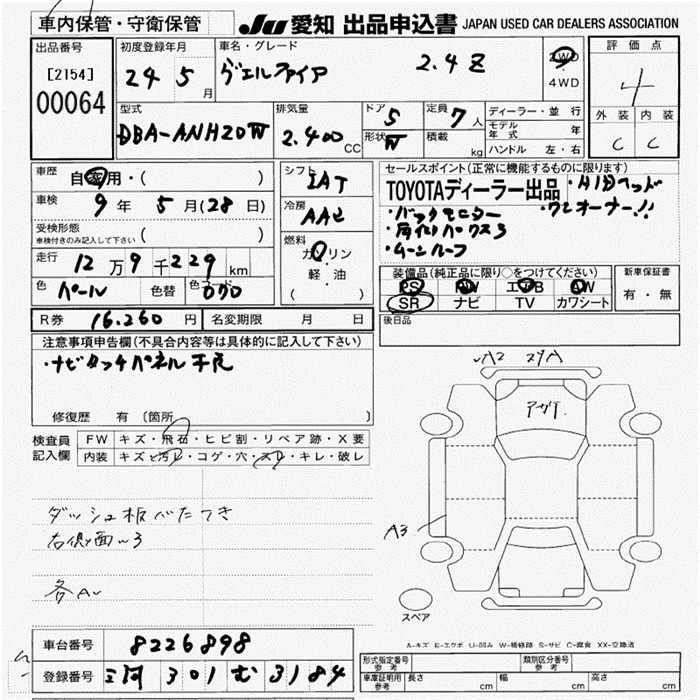 車内保管・守衛保管
JU 愛知 出品申込書 JAPAN USED CAR DEALERS ASSOCIATION
出品番号
[2154]
00064
初度登録年月
24 5月
車名・グレード
ヴェルファイア 2.4Z
2WD・4WD
評価点
4
外装 内装
C C
型式
DBA-ANH20W
排気量
2.400 CC
ドア 5
形状 W
定員 7人
積載 kg
ディーラー・並行
モデル年式 年
ハンドル 左・右
車歴 自家用・( )
車検 9年 5月(28日)
受検形態
車検付きのみ記入して下さい ( )
走行 12万9千229km
色 パール 色替 色コード
シフト IAT
冷房 AAC
燃料 ガソリン・軽・油
( )
セールスポイント(正常に機能するものに限ります)
TOYOTAディーラー出品
・バックモニター ・ワンオーナー!!
・ムーンルーフ
装備品(純正品に限り○をつけてください)
PS PW エアB AW
SR ナビ TV カワシート
新車保証書
有・無
後日品
R券 16.260円 名変期限 月 日
注意事項申告欄(不具合内容等は具体的に記入して下さい)
・ナビタッチパネル不良
修復歴 有 〔箇所 〕
検査員記入欄
FW キズ・飛石・ヒビ割・リペア跡・X要
内装 キズと汚レ・コゲ・穴・スレ・キレ・破レ
A2 スリA
アゲイ
A3
スペア
ダッシュ板べたつき
右側面〜3
各A〜
A-キズ E-エクボ U-凹み W-補修跡 S-サビ C-腐食 XX-交換済
車台番号 8226898
登録番号 三河 301 む 3184
形式指定番号 参考
類別区分番号 参考
車庫証明用 参考 長さ cm 幅 cm 高さ cm